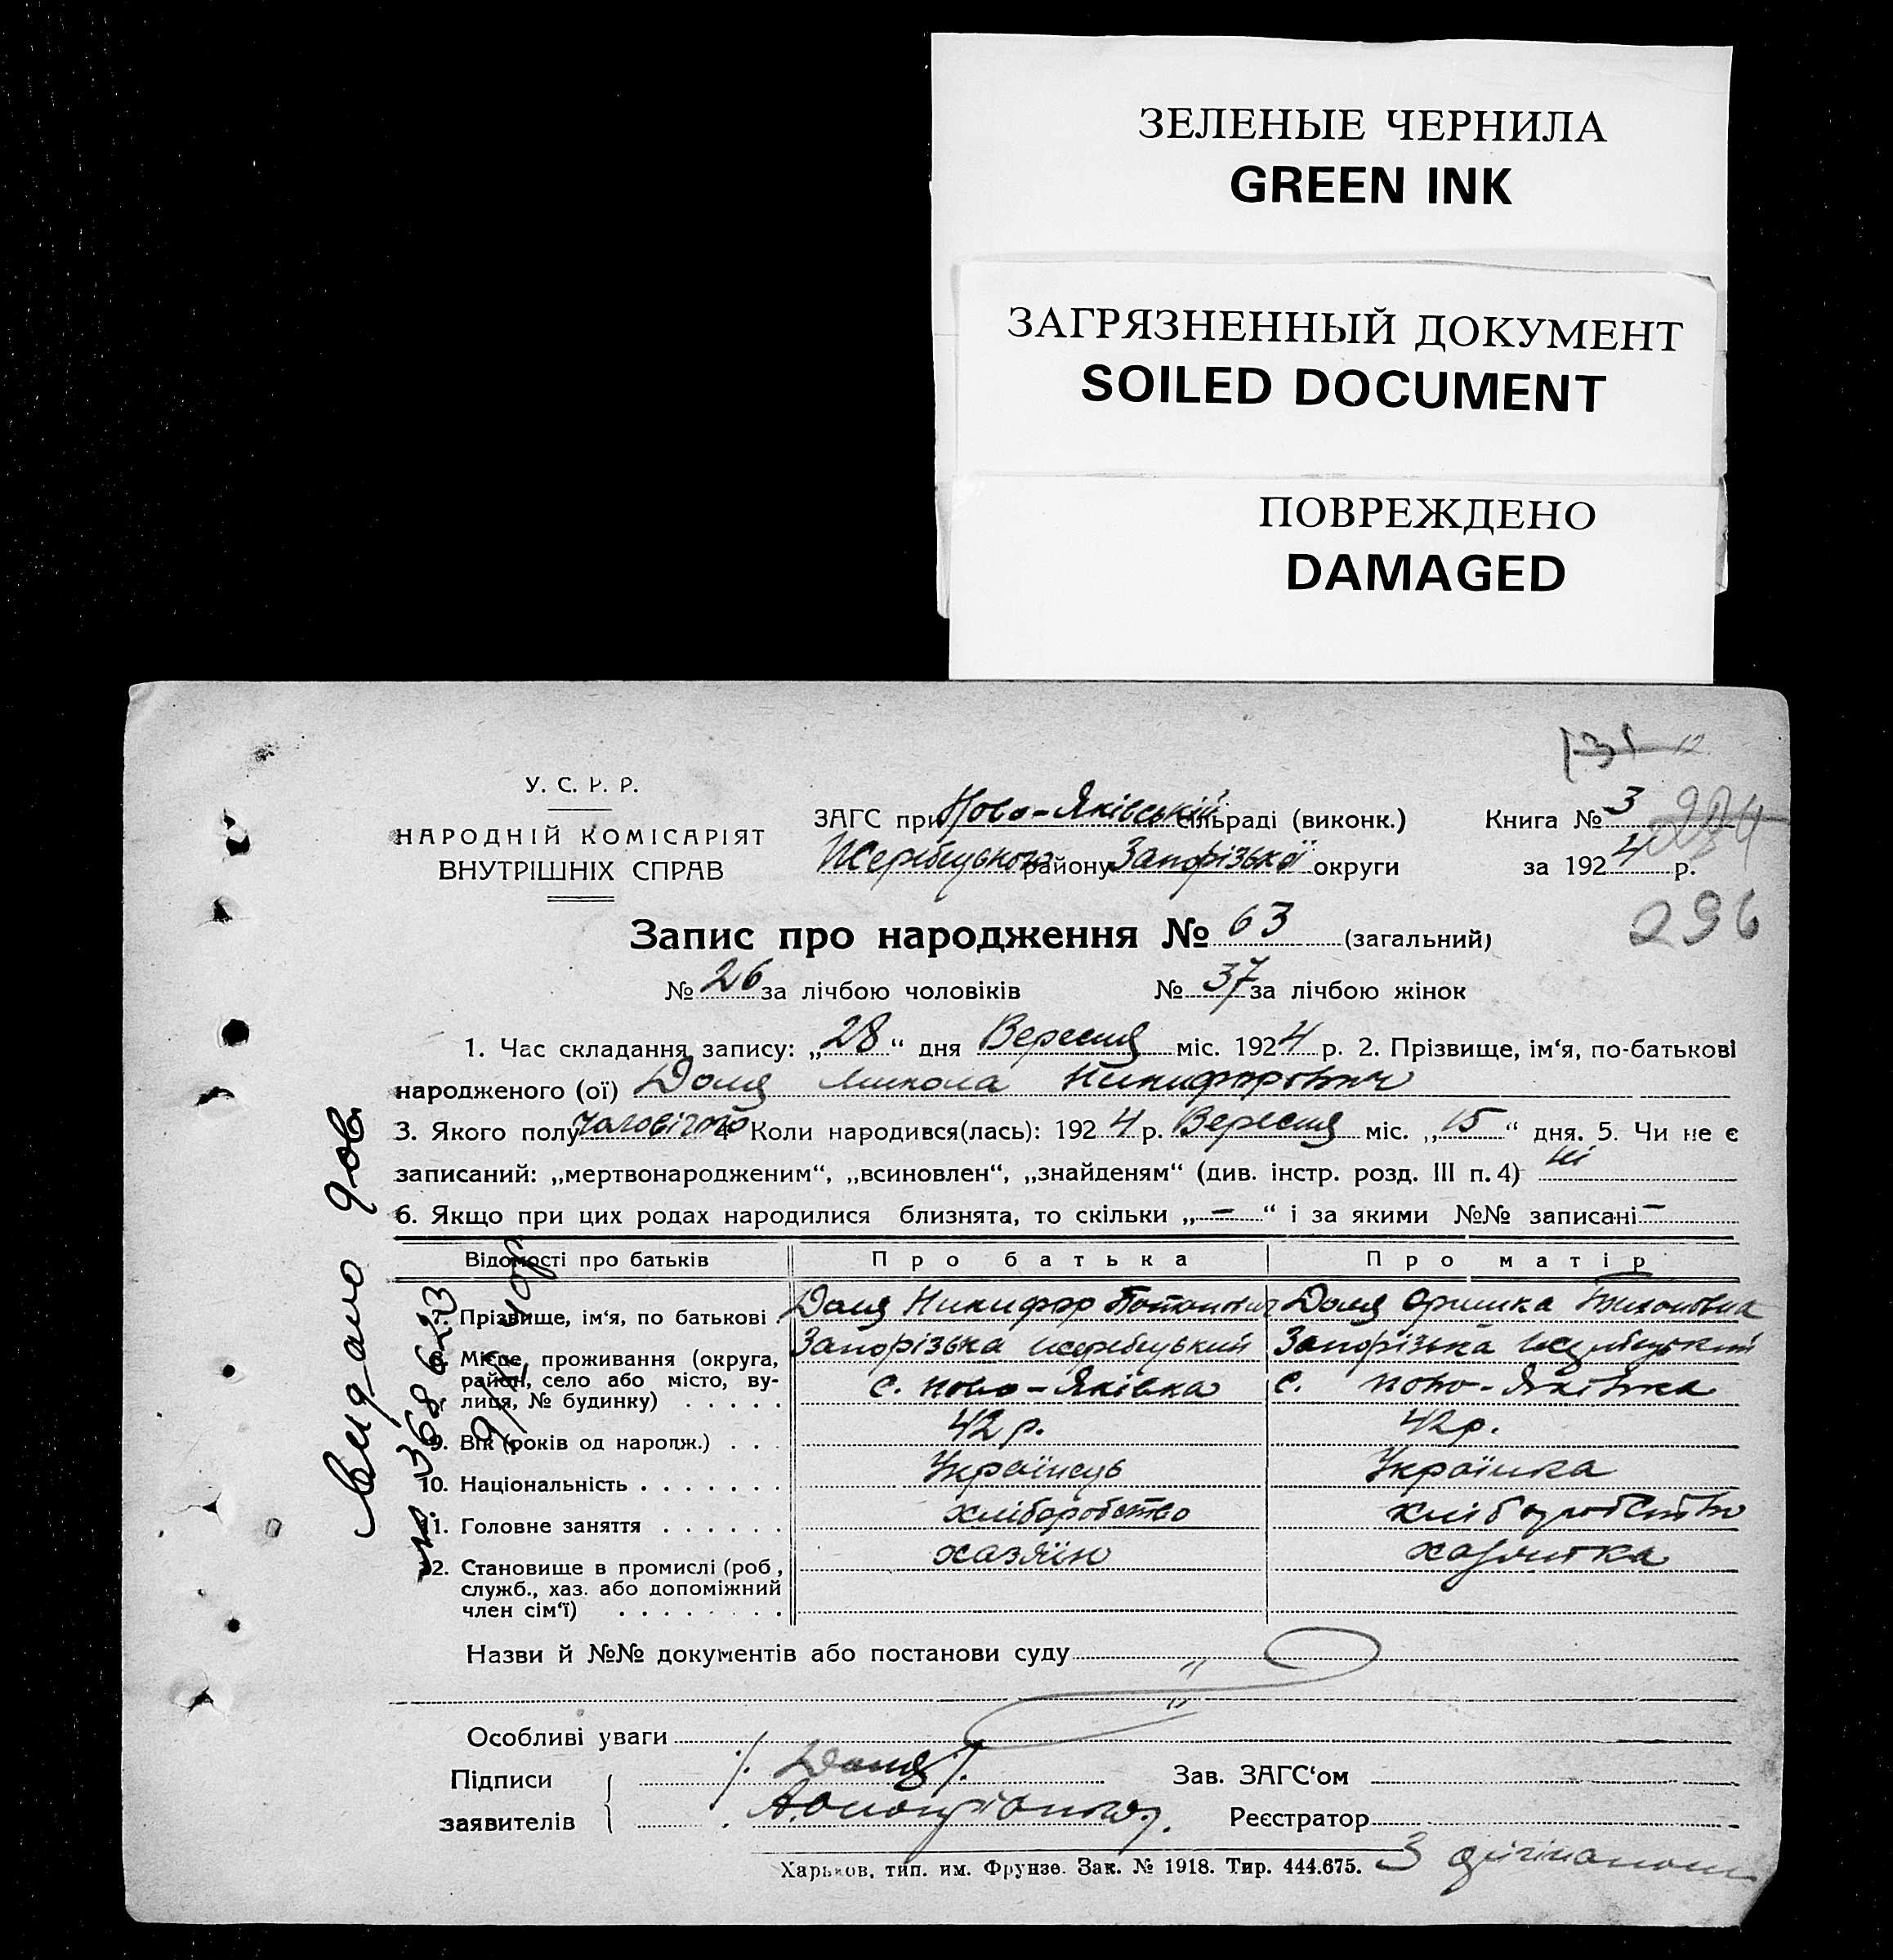 ЗЕЛЕНЫЕ ЧЕРНИЛА
GREEN INK
ЗАГРЯЗНЕННЫЙ ДОКУМЕНТ
SOILED DOCUMENT
ПОВРЕЖДЕНО
DAMAGED
131 12
У. С. Р. Р.
НАРОДНІЙ КОМІСАРІЯТ
ВНУТРІШНІХ СПРАВ
ЗАГС при Ново-Яківській сільраді (виконк.) Книга № 3
Жеребецького району Запорізької округи за 1924 р.
296
Запис про народження № 63 (загальний)
№ 26 за лічбою чоловіків № 37 за лічбою жінок
1. Час складання запису: „28“ дня Вересня міс. 1924 р. 2. Прізвище, ім‘я, по-батькові
народженого (ої) Доля Микола Никифорович
3. Якого полу чоловічого 4 Коли народився(лась): 1924 р. Вересня міс. „15“ дня. 5. Чи не є
записаний: „мертвонародженим“, „всиновлен“, „знайденям“ (див. інстр. розд. III п. 4) ні
6. Якщо при цих родах народилися близнята, то скільки „—“ і за якими №№ записані —
Відомості про батьків Про батька Про матір
7. Прізвище, ім‘я, по батькові Доля Никифор Доля Оришка
8. Місце, проживання (округа, район, село або місто, вулиця, № будинку) . . . . . Запорізька Жеребецький Запорізька Жеребецький
с. Ново-Яківка с. Ново-Яківка
9. Вік (років од народж.) . . . 42 р. 42 р.
10. Національність . . . . . . . Українець Українка
11. Головне заняття . . . . . . хліборобство хліборобство
12. Становище в промислі (роб, служб., хаз. або допоміжний член сім‘ї) . . . . . . . хазяїн хазяйка
Назви й №№ документів або постанови суду
Особливі уваги
Підписи /. Доля /. Зав. ЗАГС‘ом
заявителів Реєстратор
Харьков, тип. им. Фрунзе. Зак. № 1918. Тир. 444.675. З
Видано дов.
№ 368623